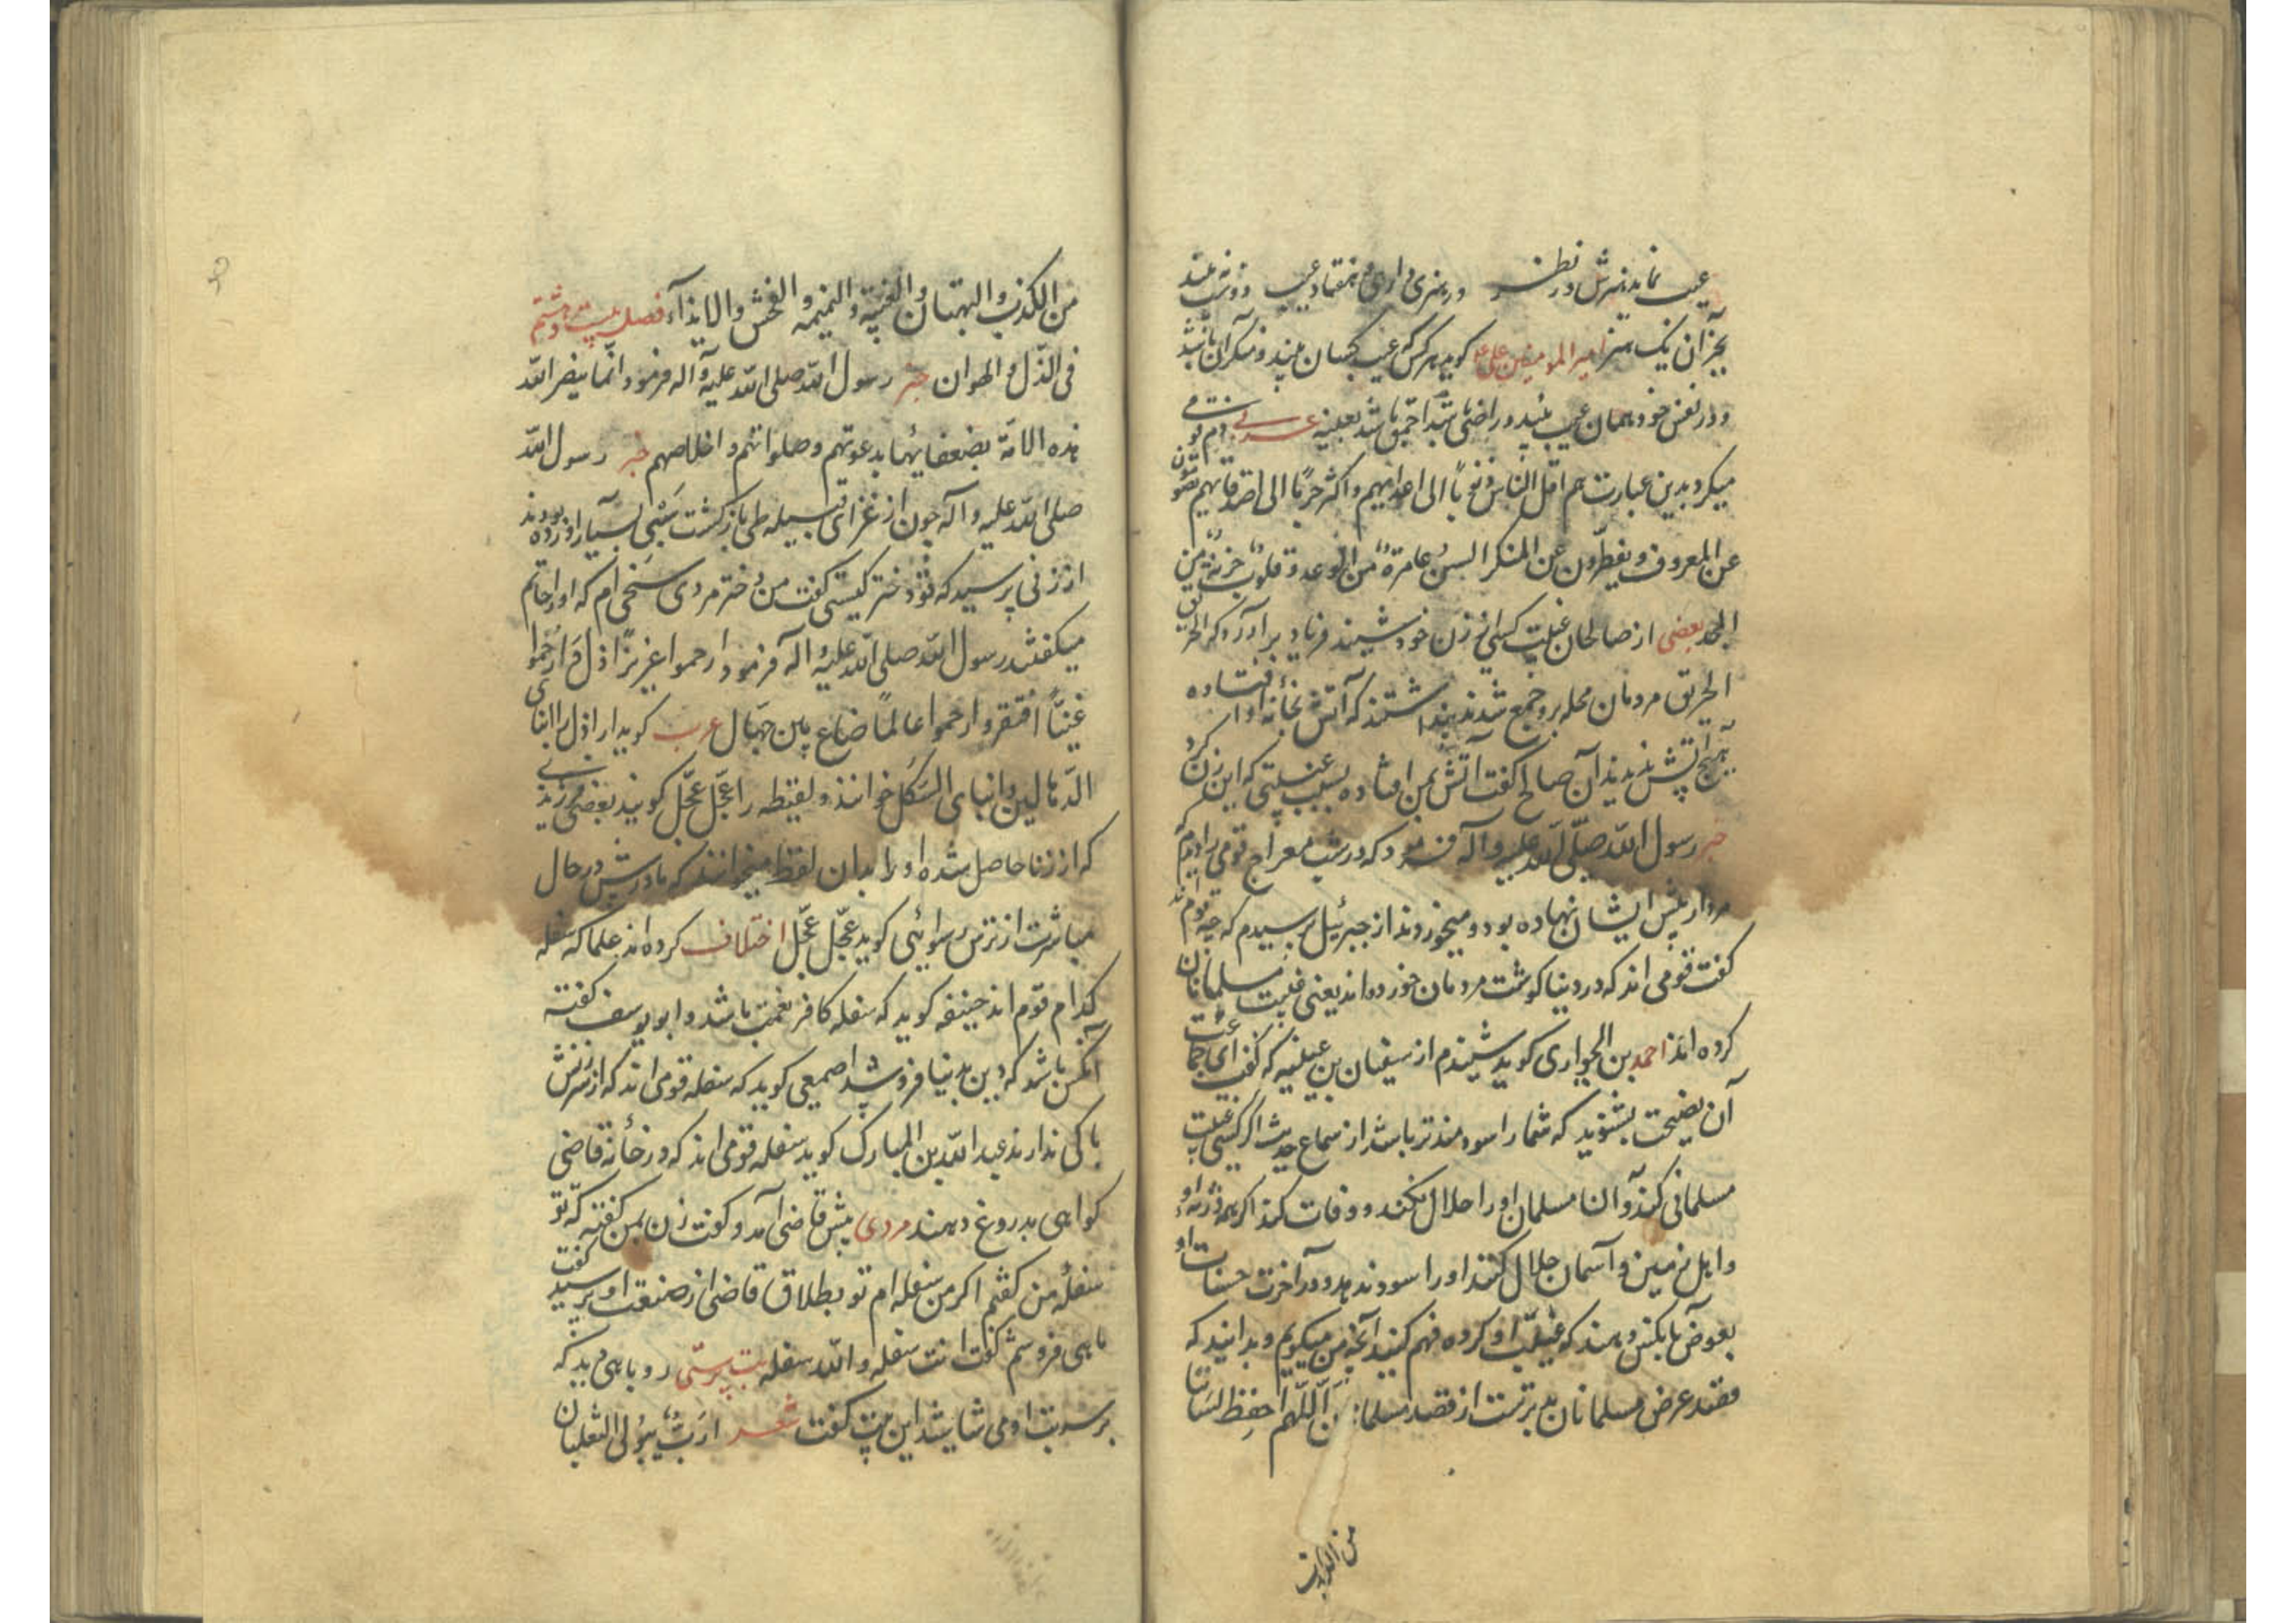 عیب نماید هنرش در نظر ور هنری داری و هفتاد عیب دوست نه بیند
بجز آن یک هنر امیر المومنین علی ع کوید هرکس که عیب کسان بیند و منکر آن باشد
و در نفس خود همان عیب بیند و راضی باشد احمق باشد بعینه عربی ذم قومی
میکرد بدین عبارت هم اقل الناس ذنوبا الی اعدایهم و اکثر جرما الی اصدقایهم یصومون
عن المعروف و یفطرون عن المنکر السن عامرة من الوعد و قلوب خربة من
المجد بعضی از صالحان غیبت کسی از زن خود شنید فریاد برآورد که الحریق
الحریق مردمان محله برو جمع شدند پنداشتند که آتش بخانه او افتاده
هیچ آتش ندیدند آن صالح کفت آتش بمن افتاده بسبب غیبتی که این زن کرد
خبر رسول الله صلی الله علیه و آله فرمود که در شب معراج قومی را دیدم که
مردار پیش ایشان نهاده بود و میخوردند از جبرئیل پرسیدم که چه قوم اند
کفت قومی اند که در دنیا کوشت مردمان خورده اند یعنی غیبت مسلمانان
کرده اند احمد بن الحواری کوید شنیدم از سفیان بن عیینه که کفت ای جماعت
آن نصیحت بشنوید که شما را سودمندتر باشد از سماع حدیث اکر کسی غیبت
مسلمانی کند و آن مسلمان او را حلال نکند و وفات کند اکر همه ورثه او
و اهل زمین و آسمان حلال کنند او را سود ندهد و در آخرت حسنات او
بعوض بآنکس دهند که غیبت او کرده فهم کنید آنچه من میکویم و بدانید که
قصد عرض مسلمانان بدترست از قصد مسلمانان اللهم احفظ لساننا
من الکذب
من الکذب و البهتان و الغیبة و النمیمه و الفحش و الایذآء فصل بیست و هشتم
فی الذل و الهوان خبر رسول الله صلی الله علیه و آله فرمود انما ینصر الله
هذه الامة بضعفایها بدعوتهم و صلواتهم و اخلاصهم خبر رسول الله
صلی الله علیه و آله چون از غزای قبیله طی بازکشت سبی بسیار آورده بودند
از زنی پرسید که تو دختر کیستی کفت من دختر مردی سخی ام که او را حاتم
میکفتند رسول الله صلی الله علیه و آله فرمود ارحموا عزیزا ذل و ارحموا
غنیا افتقر و ارحموا عالما ضاع بین جهال عرب کوید اراذل را ابنای
الدهالین و ابنای السکک خوانند و لقیطه را عجل عجل کویند یعنی فرزندی
که از زنا حاصل شده او را بدان لفظ میخوانند که مادرش در حال
مباشرت از ترس رسوائی کوید عجل عجل اختلاف کرده اند علما که سفله
کدام قوم اند حنیفه کوید که سفله کافر نعمت باشد و ابو یوسف کفته
آنکس باشد که دین بدنیا فروشد اصمعی کوید که سفله قومی اند که از سرزنش
باکی ندارند عبد الله بن المبارک کوید سفله قومی اند که در خانه قاضی
کواهی بدروغ دهند مردی پیش قاضی آمد و کفت زن بمن کفته که تو
سفله من کفتم اکر من سفله ام تو بطلاق قاضی از صنعت او پرسید کفت
ماهی فروشم کفت انت سفله و الله سفله بت پرستی روباهی دید که
بر سر بت او می شاشید این بیت کفت شعر ارب یبول الثعلبان